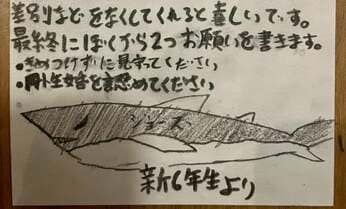 差別などをなくしてくれると喜しいです。
最終にぼくから2つお願いを書きます。
・きめつけずに見守ってください
・同性婚を認めてください
ジンズ
新6年生より